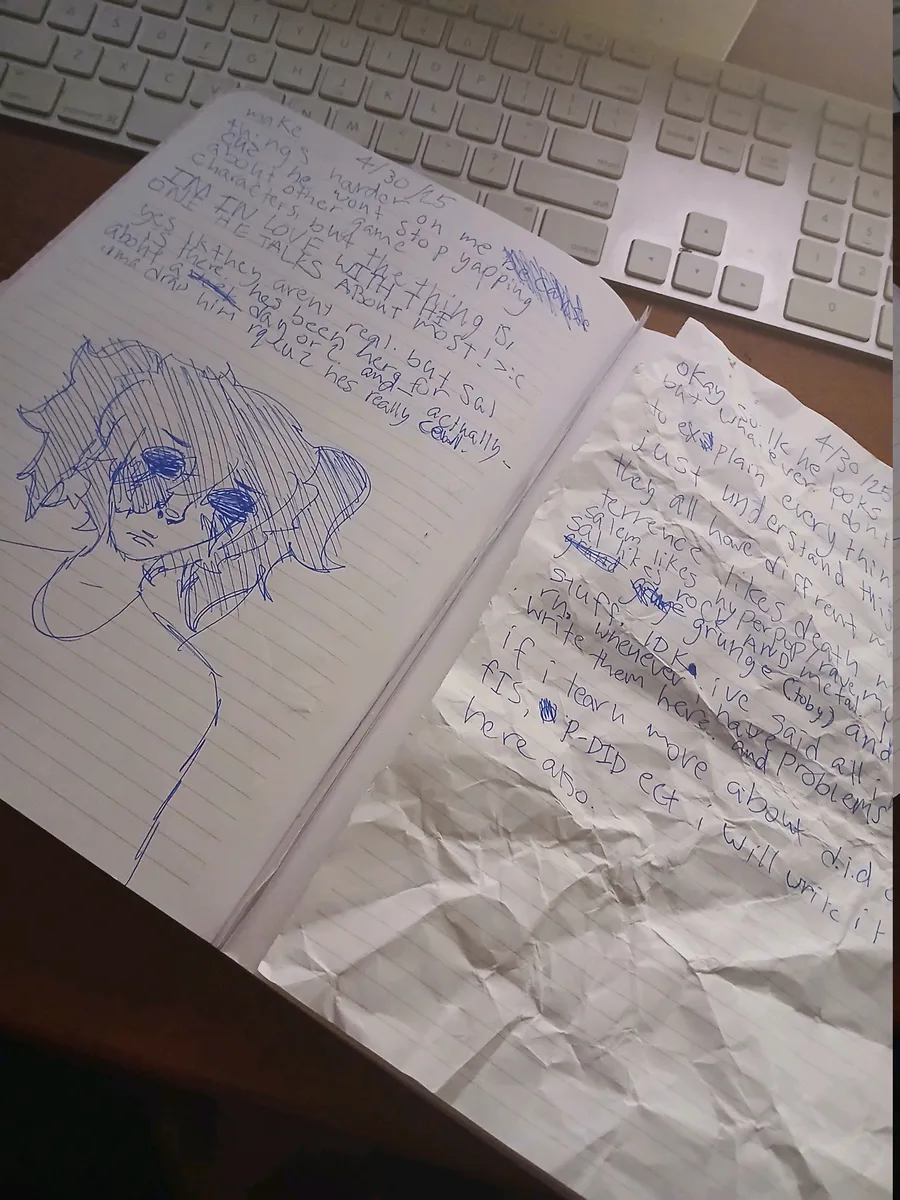 4/30/25
make
things harder on me
cus he wont stop yapping
about other game
characters, but the thing is,
IM IN LOVE WITH THE
ONE HE TALKS ABOUT most! >:c
yes ik they arent real. but sal
is there.
about a day or 2 and actually-
imma draw him rq cuz hes really
4/30/25
okay i like he looks
but whatever i dont
to explain everythin
Just understand this
they all have diffrent
terrence likes death
salem likes hyperpop/rave
sal likes rock AND metal
grunge (toby) and
stuff. IDK. ive said all i
rn, whenever i have
write them here.. and problems
if i learn more about d.i.d
fIS, p-DID ect i will write it
here also.